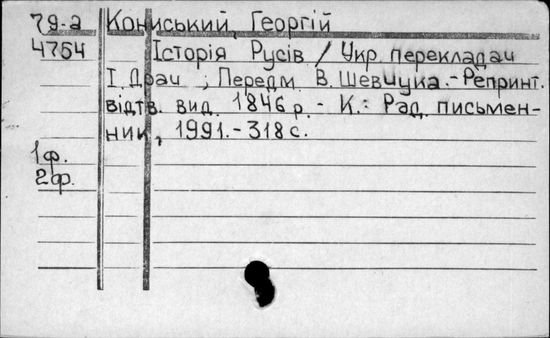 79-а Кониський, Георгій
4754 Історія Русів / Укр. перекладач
І. Драч ; Передм. В. Шевчука.-Репринт.
відтв. вид. 1846 р. - К.: Рад. письмен-
ник, 1991.-318 с.
1ф.
2ф.